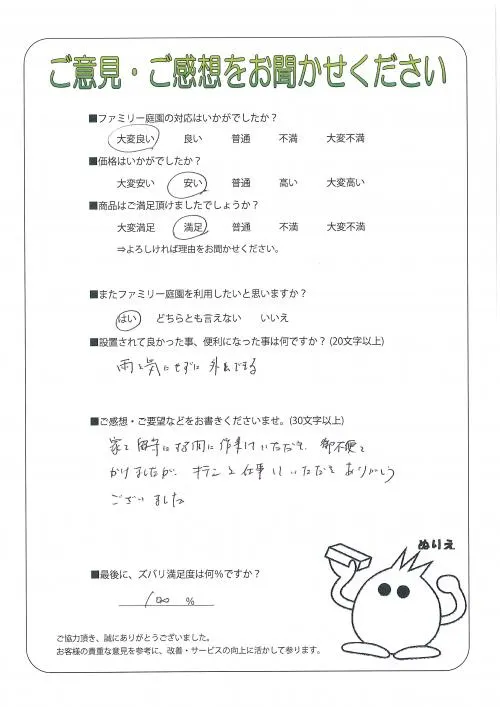 ご意見・ご感想をお聞かせください
■ファミリー庭園の対応はいかがでしたか？
大変良い 良い 普通 不満 大変不満
■価格はいかがでしたか？
大変安い 安い 普通 高い 大変高い
■商品はご満足頂けましたでしょうか？
大変満足 満足 普通 不満 大変不満
⇒よろしければ理由をお聞かせください。
■またファミリー庭園を利用したいと思いますか？
はい どちらとも言えない いいえ
■設置されて良かった事、便利になった事は何ですか？(20文字以上)
雨を気にせずに 外出できる
■ご感想・ご要望などをお書きくださいませ。(30文字以上)
家を留守にする間に作業していただき、御不便を
かけましたが、キチンと仕事していただき ありがとう
ございました
ぬりえ
■最後に、ズバリ満足度は何％ですか？
100 %
ご協力頂き、誠にありがとうございました。
お客様の貴重な意見を参考に、改善・サービスの向上に活かして参ります。